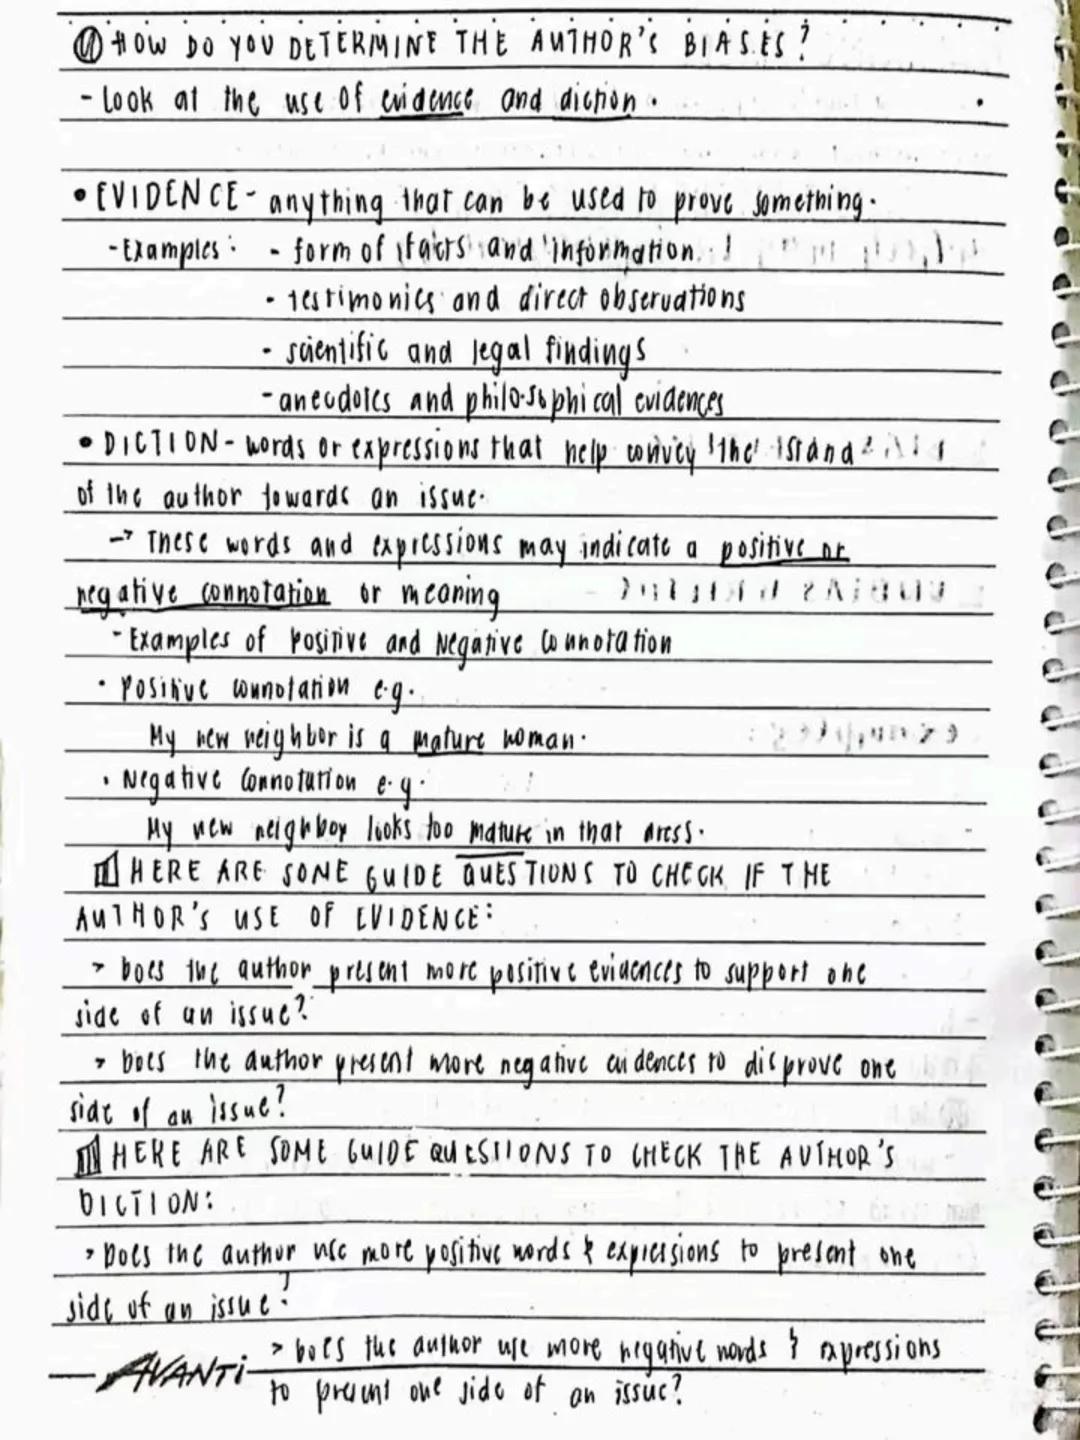 ① HOW DO YOU DETERMINE THE AUTHOR'S BIASES?
- Look at the use of evidence and diction.
• EVIDENCE - anything that can be used to prove something.
- Examples: - form of facts and information
- testimonies and direct observations
- scientific and legal findings
- anecdotes and philosophical evidences
• DICTION - words or expressions that help convey the stand
of the author towards an issue.
→ These words and expressions may indicate a positive or
negative connotation or meaning
- Examples of Positive and Negative Connotation
• Positive connotation e.g.
My new neighbor is a mature woman.
• Negative Connotation e.g.
My new neighbor looks too mature in that dress.
HERE ARE SOME GUIDE QUESTIONS TO CHECK IF THE
AUTHOR'S USE OF EVIDENCE:
> Does the author present more positive evidences to support one
side of an issue?
> Does the author present more negative evidences to disprove one
side of an issue?
HERE ARE SOME GUIDE QUESTIONS TO CHECK THE AUTHOR'S
DICTION:
> Does the author use more positive words & expressions to present one
side of an issue?
> Does the author use more negative words & expressions
to present one side of an issue?
AVANTi